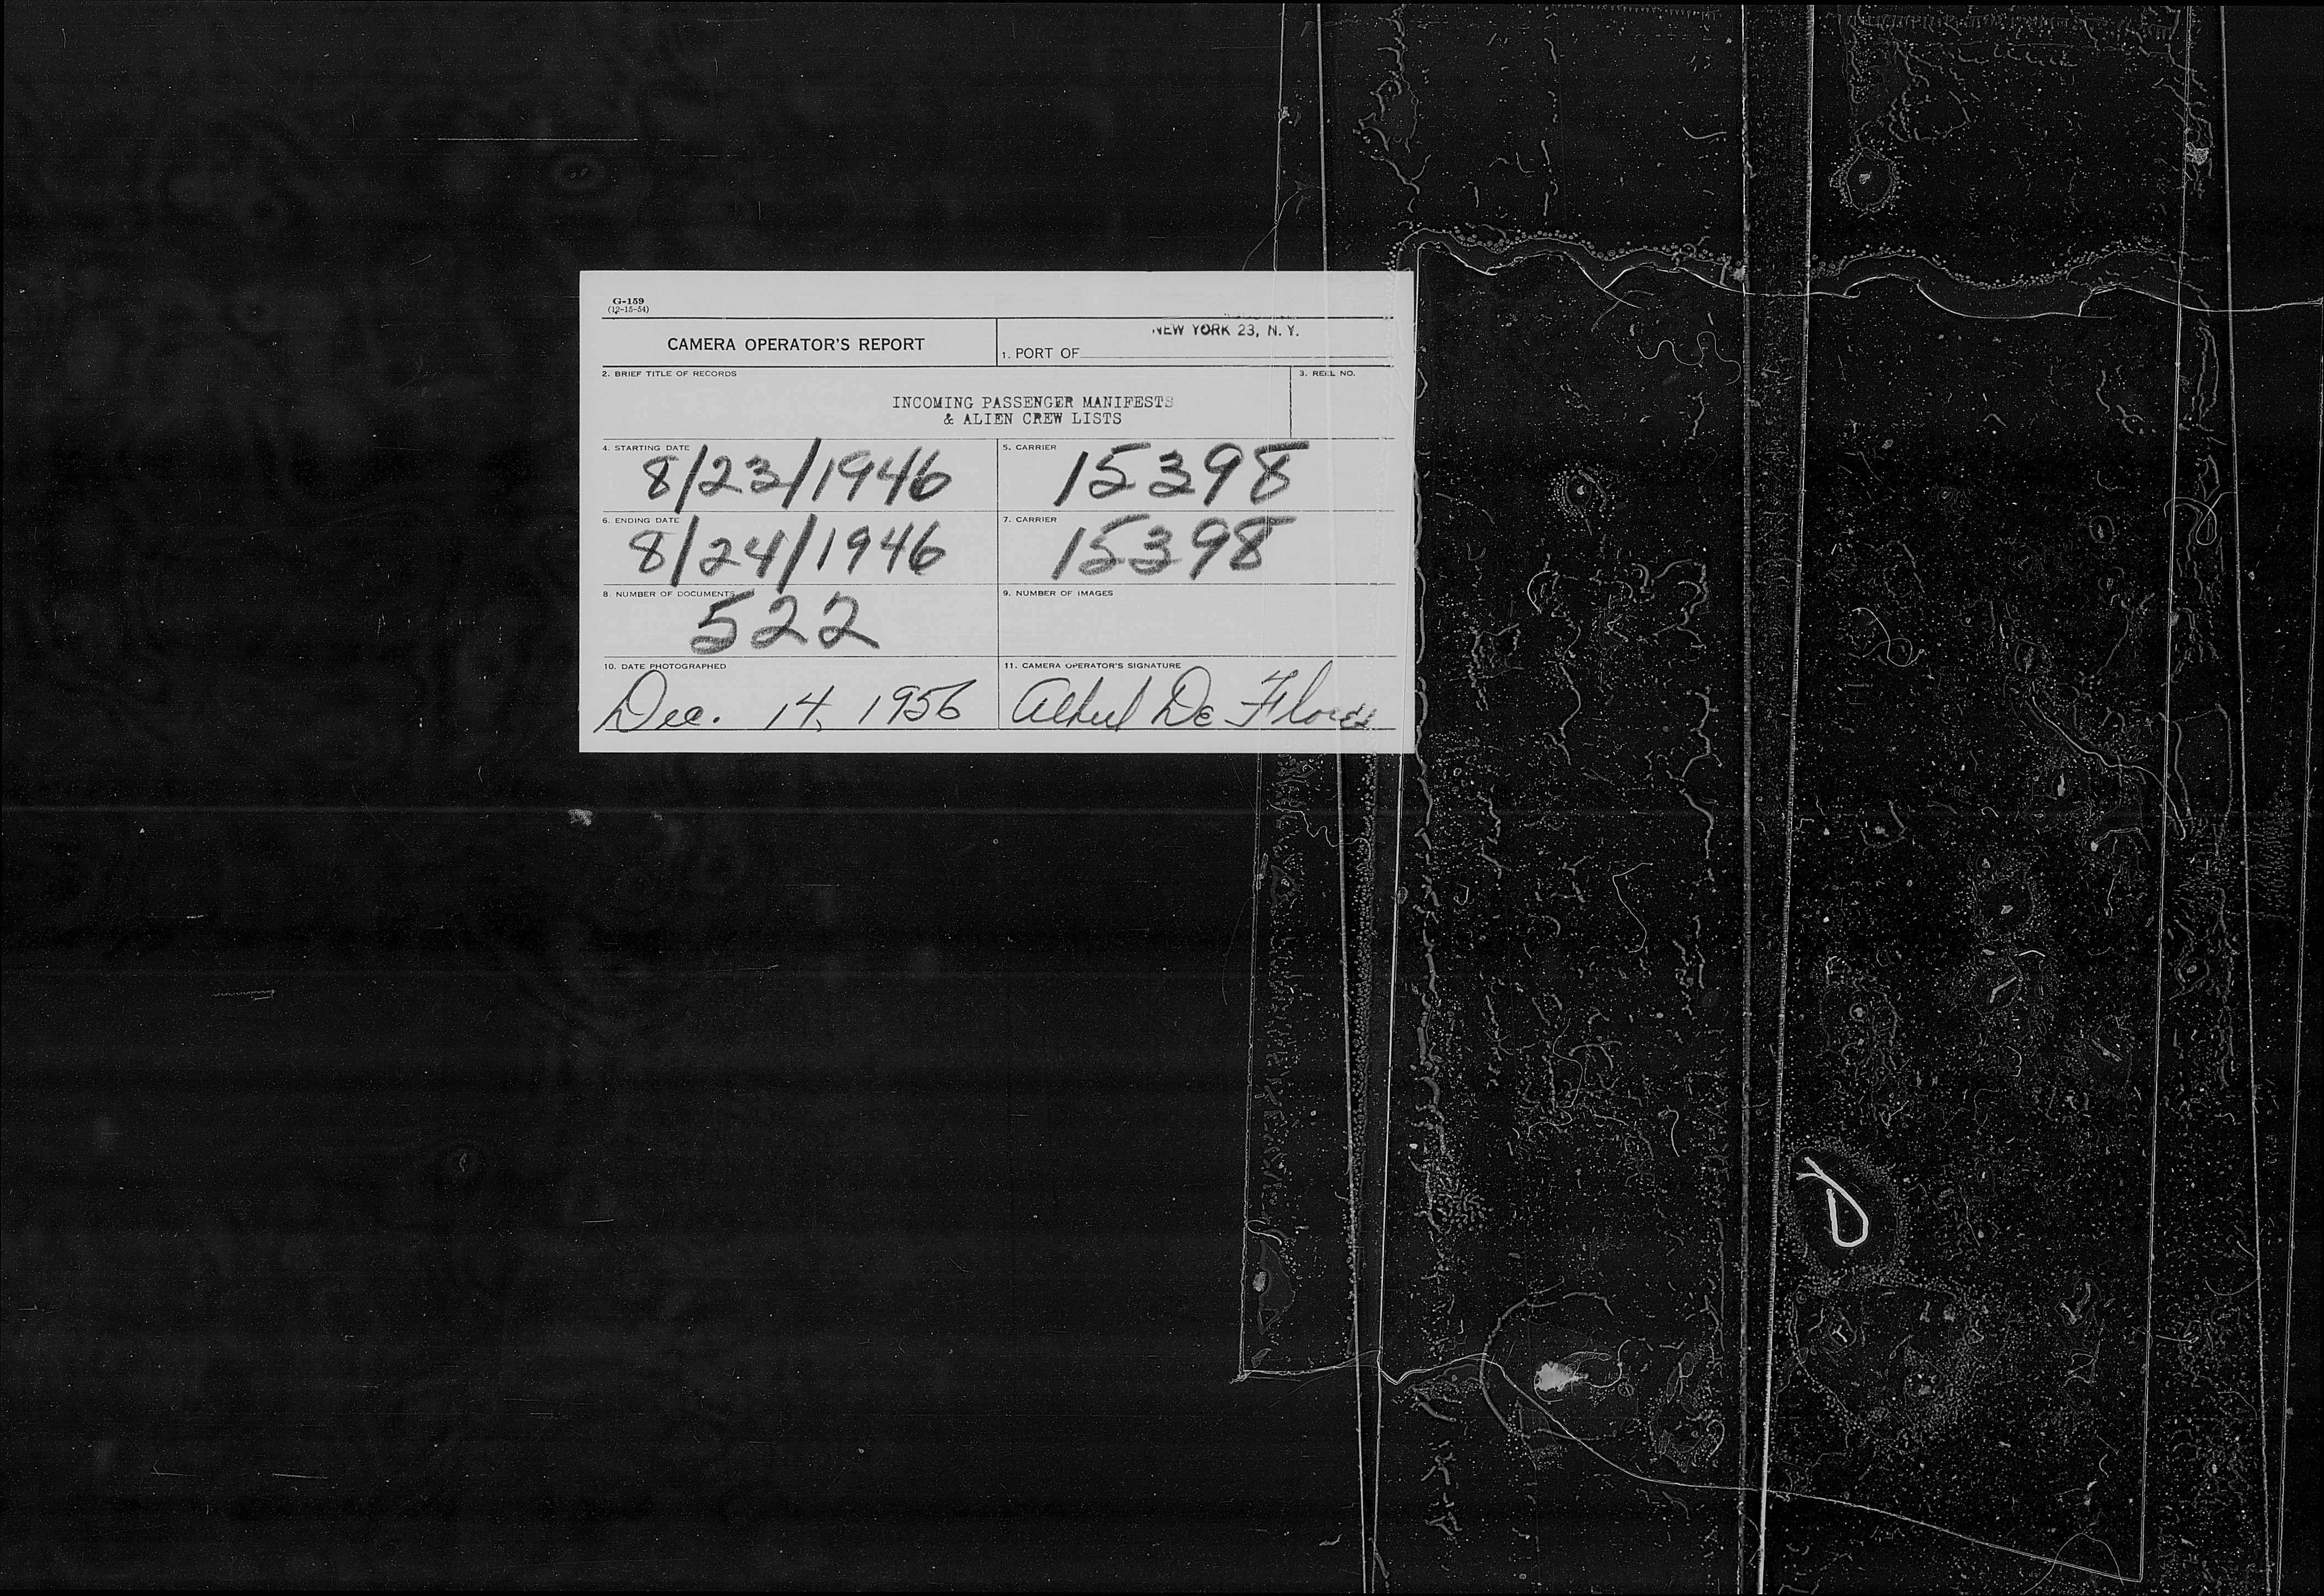 G-159
(12-15-54)
CAMERA OPERATOR'S REPORT
NEW YORK 23, N. Y.
1. PORT OF
2. BRIEF TITLE OF RECORDS
3. REEL NO.
INCOMING PASSENGER MANIFESTS
& ALIEN CREW LISTS
4. STARTING DATE
8/23/1946
5. CARRIER
15398
6. ENDING DATE
8/24/1946
7. CARRIER
15398
8. NUMBER OF DOCUMENTS
522
9. NUMBER OF IMAGES
10. DATE PHOTOGRAPHED
Dec. 14, 1956
11. CAMERA OPERATOR'S SIGNATURE
De Flores